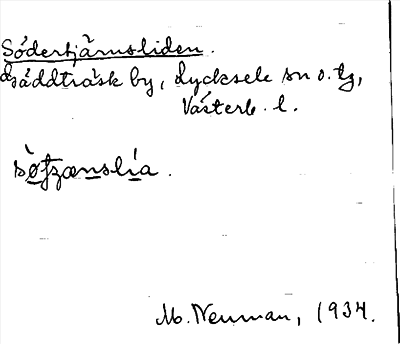 Södertjärnsliden.
Säddträsk by, Lycksele sn o. tg,
Västerb. l.
sø̀tʒænslı́a.
M. Neuman, 1934.